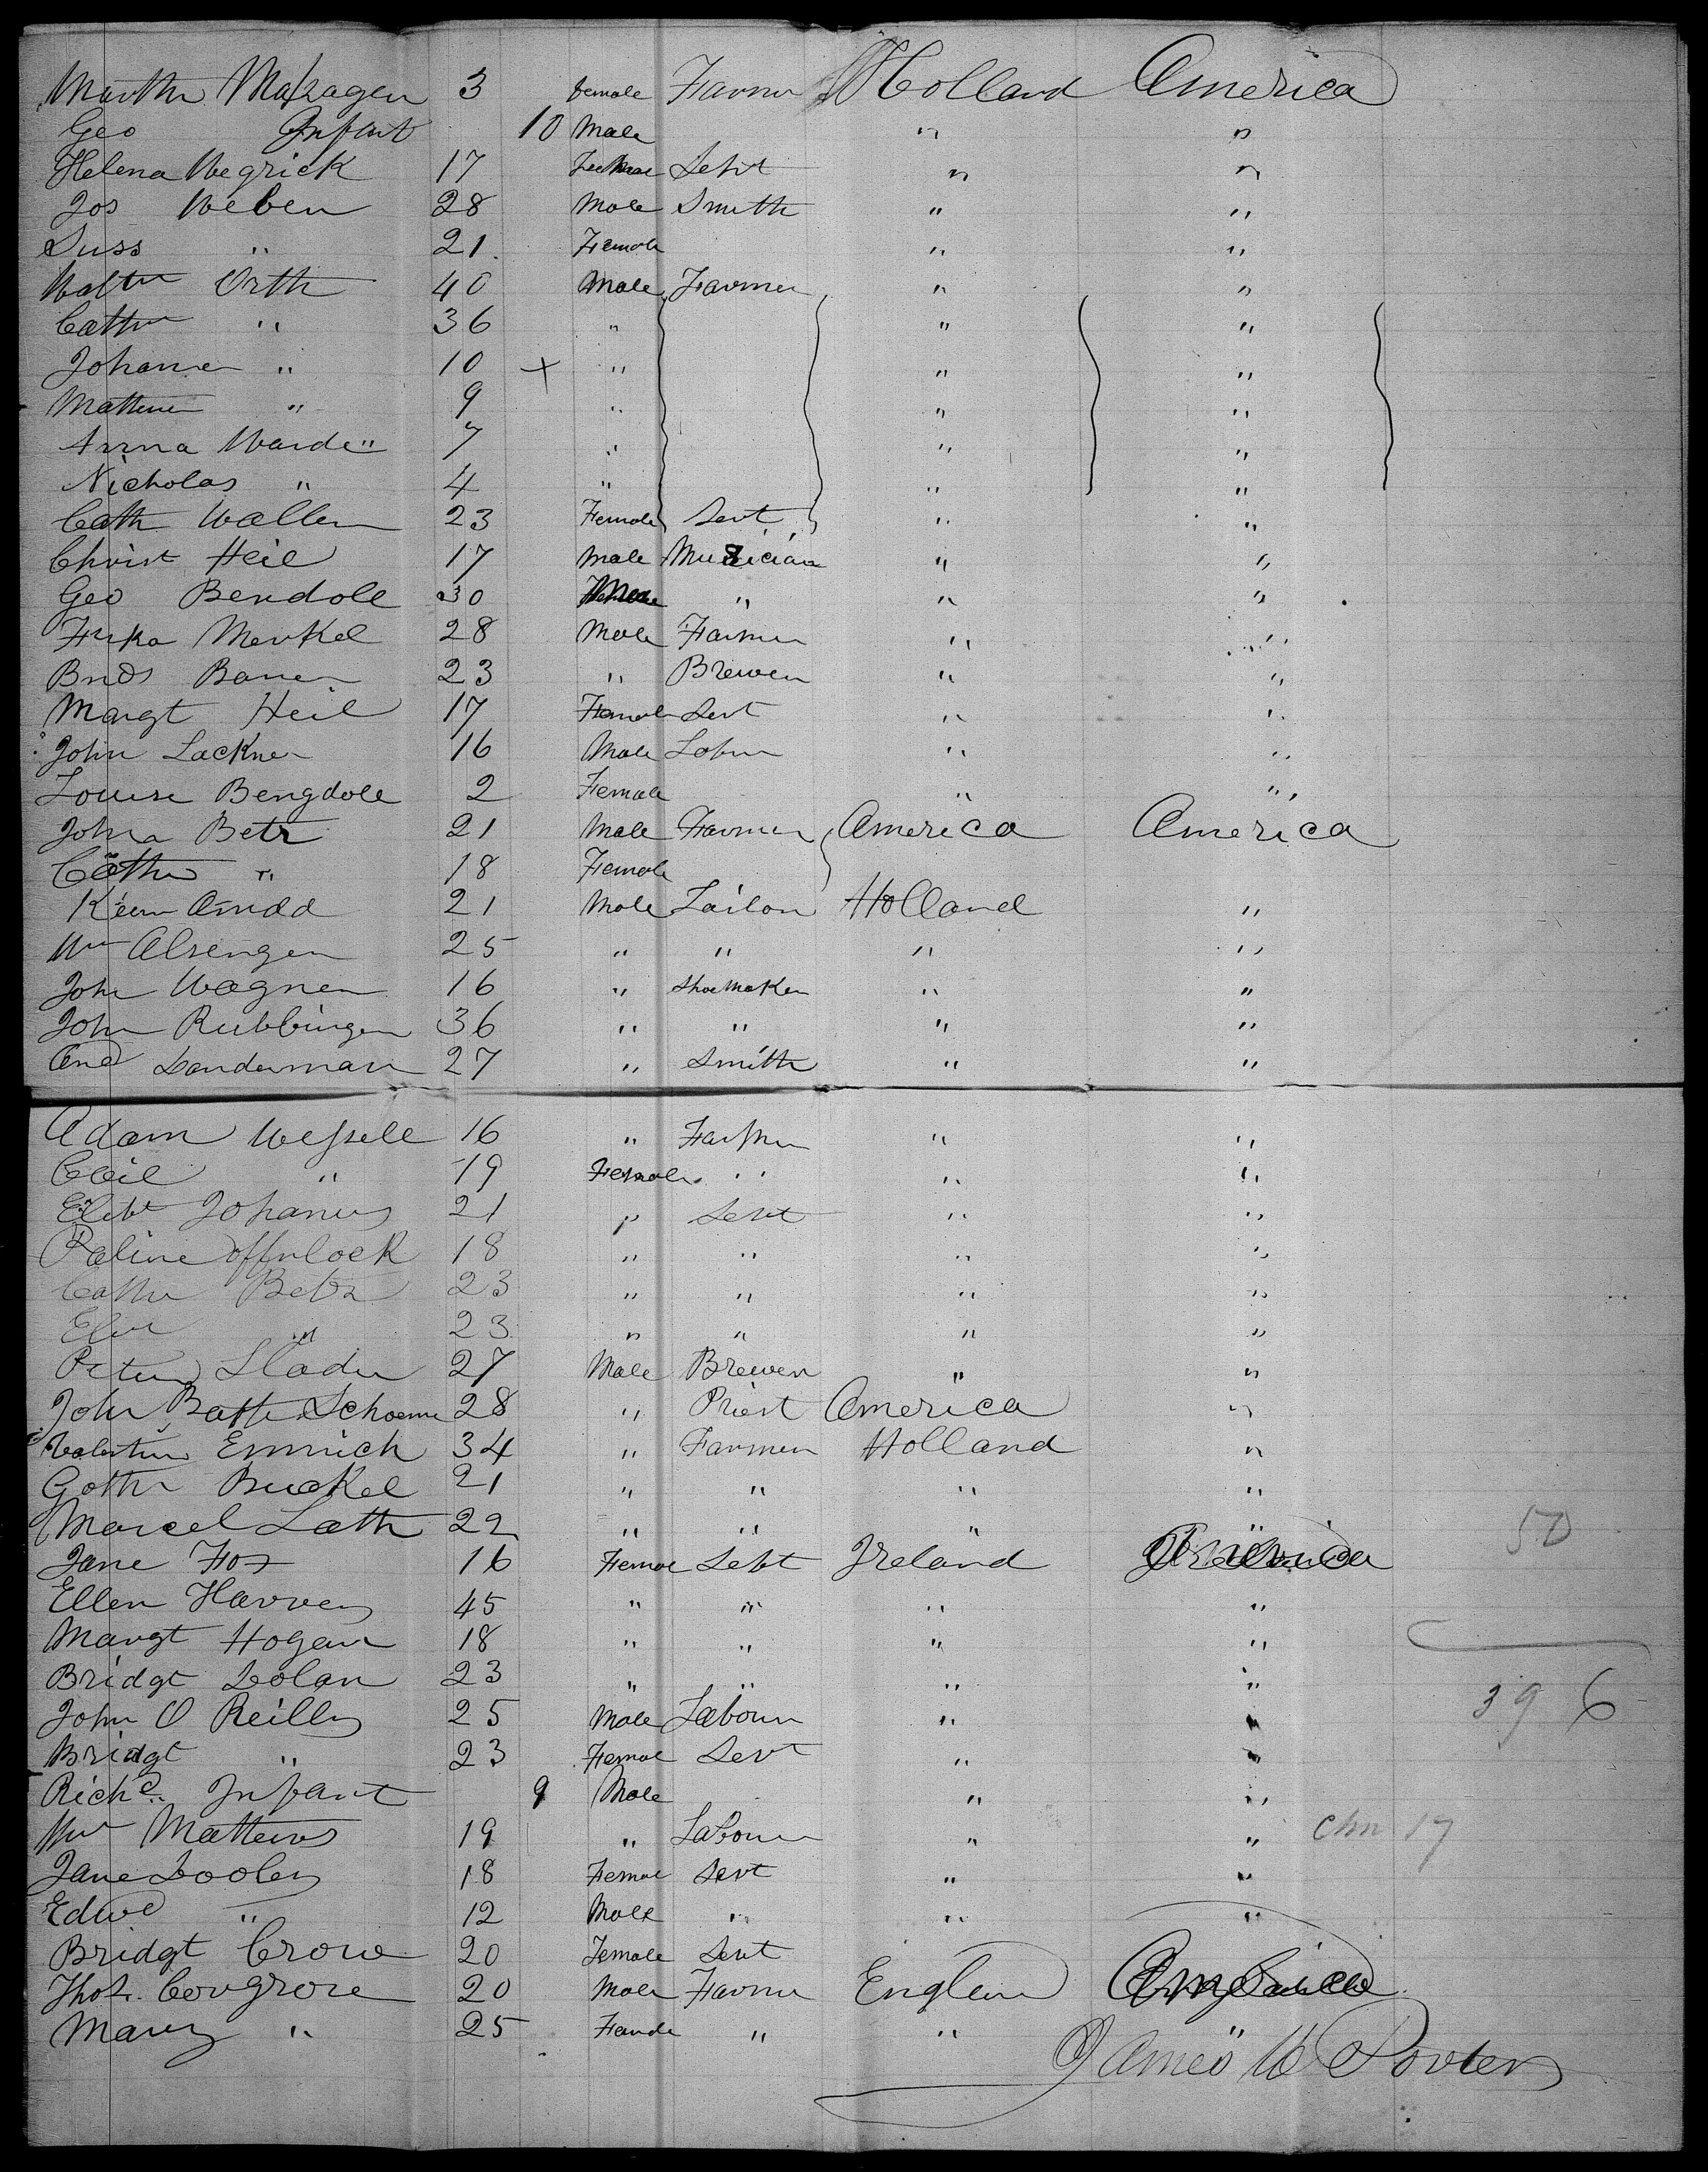 Martha 3 female Farmer Holland America
Geo Infant 10 Male " "
Helena Wegrick 17 Female Sevt " "
Jos Weber 28 Male Smith " "
Suss " 21 Female " "
Walter Orth 40 Male Farmer " "
Cathr " 36 " " "
Johanna " 10 + " " "
" 9 " " "
Anna " 7 " " "
Nicholas " 4 " " "
Cath Wallen 23 Female Sevt " "
Christ Heil 17 Male Musician " "
Geo Bendoll 30 " " "
Merkel 28 Male Farmer " "
Bauer 23 " Brewer " "
Margt Heil 17 Female Sevt " "
John Lackner 16 Male Labur " "
Louise Bengdoll 2 Female " "
John Betz 21 Male Farmer America America
Cathr " 18 Female
21 Male Tailor Holland "
Wm Alsenger 25 " " " "
John Wagner 16 " Shoemaker " "
John Rubbinger 36 " " " "
And Sanderman 27 " Smith " "
Adam Wessell 16 " Farmer " "
Cecil " 19 Female " " "
Elibt Johanns 21 " Sevt " "
18 " " " "
Cathr Betz 23 " " " "
" 23 " " " "
Peter Slader 27 Male Brewer " "
John Bapt Schoenn 28 " Priest America "
Valentin Emmich 34 " Farmer Holland "
Gothr Buckel 21 " " " "
Marcel Lath 22 " " " " 50
Jane Fox 16 Female Sevt Ireland America
Ellen Harvey 45 " " " "
Margt Hogan 18 " " " "
Bridgt Dolan 23 " " " "
John O Reilly 25 Male Labour " " 396
Bridgt " 23 Female Sevt " "
Richd Infant 9 Male " "
Wm Mathews 19 " Labour " " Chn 17
Jane Dooley 18 Female Sevt " "
Edwd " 12 Male " " "
Bridgt Crowe 20 Female Sevt
Thos. Covgrove 20 Male Farmer Englan America
Mary " 25 Female " " "
James W Porter